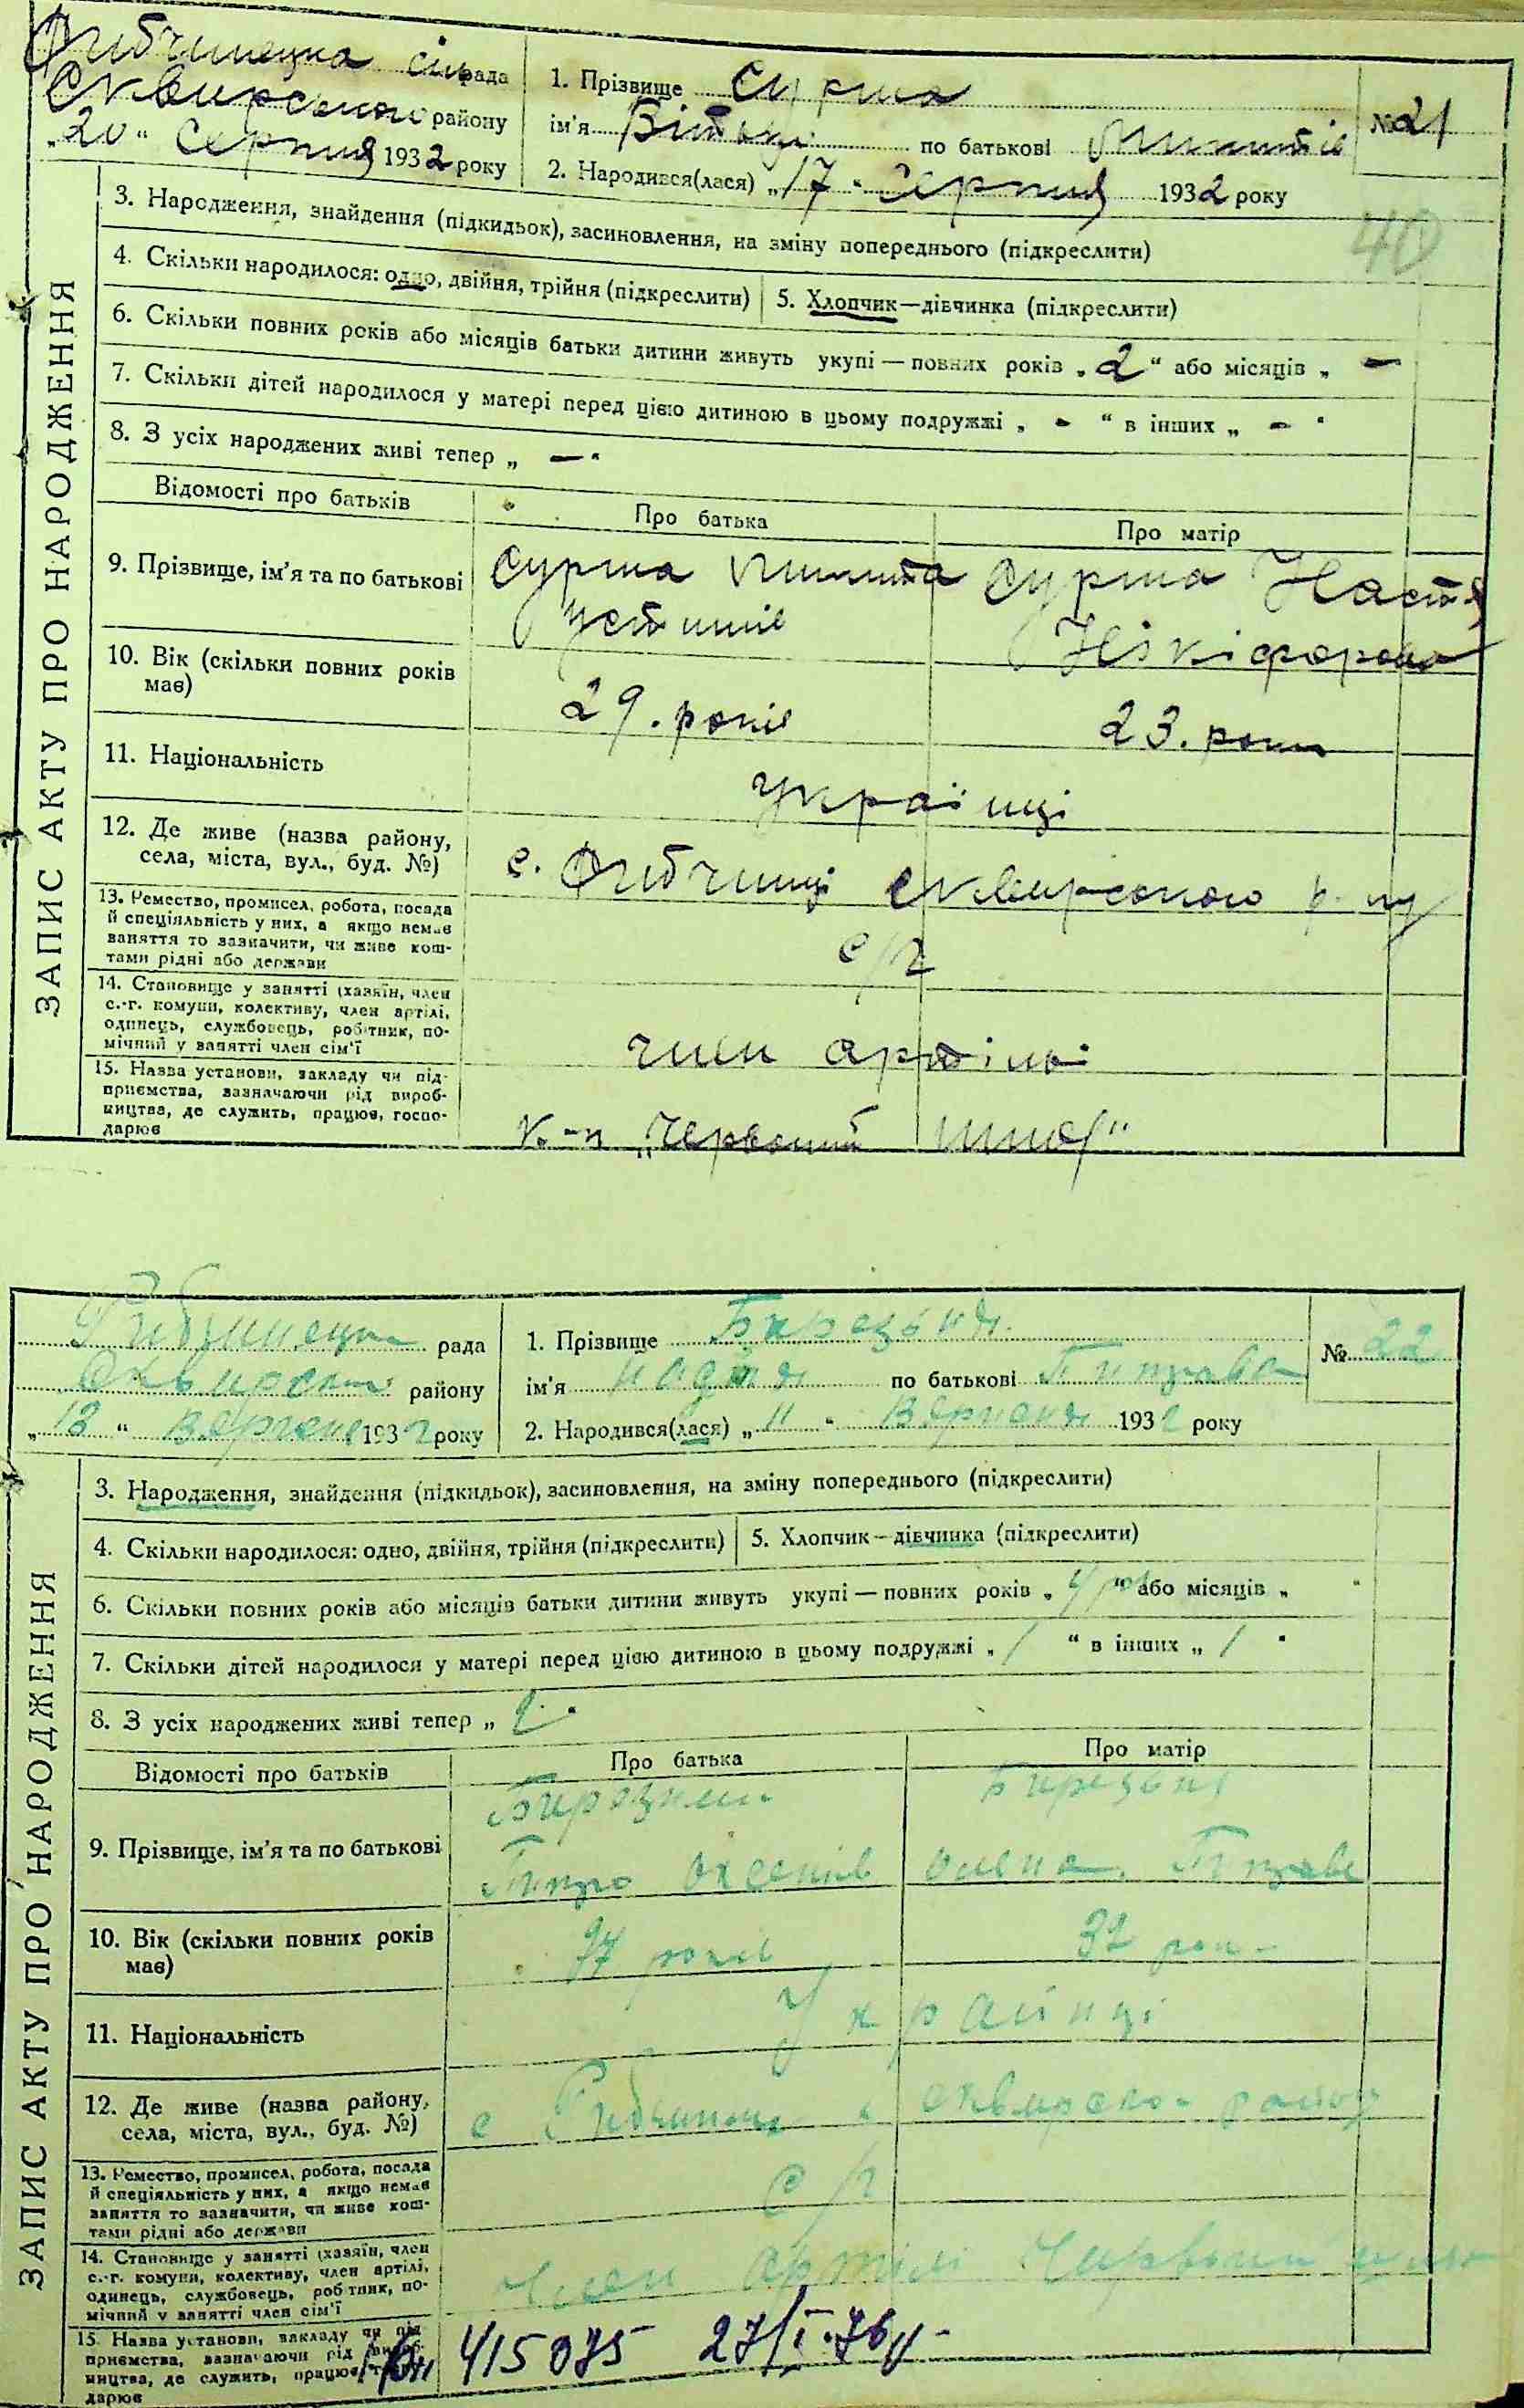 рада
Сквирського району
„20“ Серпня 1932 року
1. Прізвище Сурма
ім'я по батькові
№ 21
2. Народився(лася) „17“ Серпня 1932 року
40
ЗАПИС АКТУ ПРО НАРОДЖЕННЯ
3. Народження, знайдення (підкидьок), засиновлення, на зміну попереднього (підкреслити)
4. Скільки народилося: одно, двійня, трійня (підкреслити)
5. Хлопчик—дівчинка (підкреслити)
6. Скільки повних років або місяців батьки дитини живуть укупі — повних років „2“ або місяців „ —
7. Скільки дітей народилося у матері перед цією дитиною в цьому подружжі „ - “ в інших „ - “
8. З усіх народжених живі тепер „ — “
Відомості про батьків
Про батька
Про матір
9. Прізвище, ім'я та по батькові
Сурма
Сурма Настя
Нікіфорова
10. Вік (скільки повних років має)
29. років
23. роки
11. Національність
Українці
12. Де живе (назва району, села, міста, вул., буд. №)
с. Сквирського р-ну
13. Ремество, промисел, робота, посада
й спеціяльність у них, а якщо немає
заняття то зазначити, чи живе кош-
тами рідні або держави
с/г
14. Становище у занятті (хазяїн, член
с.-г. комуни, колективу, член артілі,
одинець, службовець, робітник, по-
мічний у занятті член сім'ї
член артілі
15. Назва установи, закладу чи під-
приємства, зазначаючи рід вироб-
ництва, де служить, працює, госпо-
дарює
к-п „Червоний шлях“
рада
району
„13“ Вересня 1932 року
1. Прізвище
ім'я Надія по батькові
№ 22
2. Народився(лася) „11“ 1932 року
ЗАПИС АКТУ ПРО НАРОДЖЕННЯ
3. Народження, знайдення (підкидьок), засиновлення, на зміну попереднього (підкреслити)
4. Скільки народилося: одно, двійня, трійня (підкреслити)
5. Хлопчик—дівчинка (підкреслити)
6. Скільки повних років або місяців батьки дитини живуть укупі — повних років „4 “ або місяців „ “
7. Скільки дітей народилося у матері перед цією дитиною в цьому подружжі „ / “ в інших „ / “
8. З усіх народжених живі тепер „2“
Відомості про батьків
Про батька
Про матір
9. Прізвище, ім'я та по батькові
10. Вік (скільки повних років має)
років
32 рок-
11. Національність
Українці
12. Де живе (назва району, села, міста, вул., буд. №)
с району
13. Ремество, промисел, робота, посада
й спеціяльність у них, а якщо немає
заняття то зазначити, чи живе кош-
тами рідні або держави
с/г
14. Становище у занятті (хазяїн, член
с.-г. комуни, колективу, член артілі,
одинець, службовець, робітник, по-
мічний у занятті член сім'ї
Член артілі
15. Назва установи, закладу чи під-
приємства, зазначаючи рід вироб-
ництва, де служить, працює, госпо-
дарює
415075 27/I.76